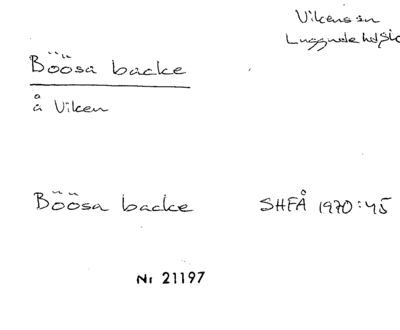 Vikens sn
Luggude hd Sk
Böösa backe
å Viken
Böösa backe SHFÅ 1970:45
Nr 21197